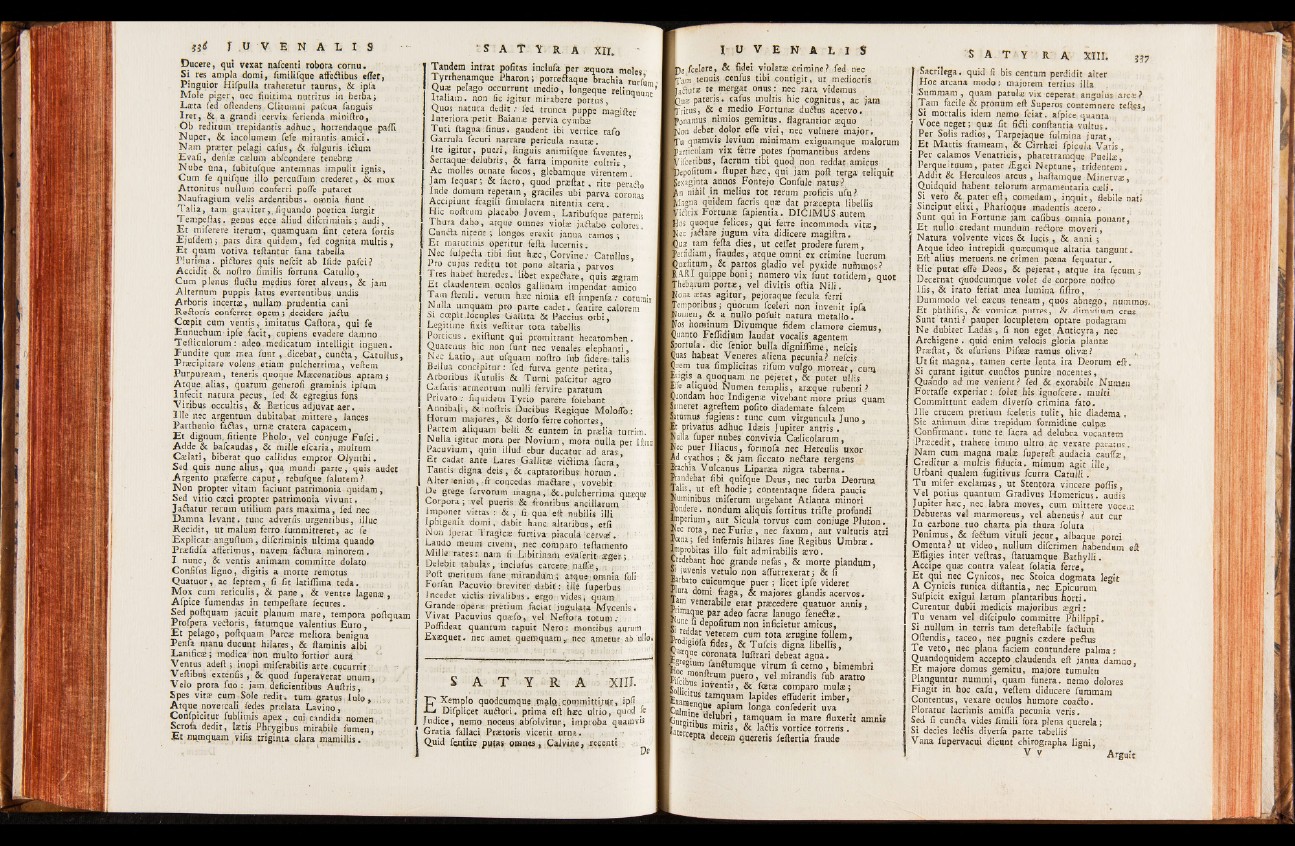 336 JUVENALIS
Ducere, qui vexat nascenti robora cornu.
Si res ampla domi, similisque affectibus esset,
Pinguior Hispulla traheretur taurus, & ipsa
Mole piger, nec finitima nutritus in herba;
Læta sed ostendens Clitumni pascua sanguis
Iret, & a grandi cervix ferienda ministro,
Ob reditum trepidantis adhuc, horrendaque passi
Nuper, & incolumem sese mirantis amici.
Nam præter pelagi casus, & fulguris ictum
Evasi, densæ cælum abscondere tenebræ
Nube una, subitusque antemnas impulit ignis,
Cum se quisque illo percussum crederet, & mox
Attonitus nullum conferri posse putaret
Naufragium velis ardentibus. omnia fiunt
Talia, tam graviter, siquando poetica surgit
Tempestas. genus ecce aliud discriminis; audi,
Et miserere iterum, quamquam sint cetera sortis
Ejusdem; pars dira quidem, sed cognita multis,
Et quam votiva testantur fana tabella
Plurima. pictores quis nescit ab Iside pasci?
Accidit & nostro similis fortuna Catullo,
Cum plenus fluctu medius foret alveus, & jam
Alternum puppis latus evertentibus undis
Arboris incertæ, nullam prudentia cani
Rectoris conferret opem; decidere jactu
Cœpit cum ventis, imitatus Castora, qui se
Eunuchum ipse facit, cupiens evadere damno
Testiculorum: adeo medicatum intelligit inguen.
Fundite quæ mea sunt, dicebat, cuncta, Catullus,
Præcipitare volens etiam pulcherrima, vestem
Purpuream, teneris quoque Mæcenatibus aptam;
Atque alias, quarum generosi graminis ipsum
Infecit natura pecus, sed & egregius fons
Viribus occultis, & Bæticus adjuvat aer.
Ille nec argentum dubitabat mittere, lances
Parthenio factas, urnæ cratera capacem,
Et dignum sitiente Pholo, vel conjuge Fusci.
Adde & bascaudas, & mille escaria, multum
Cælati, biberat quo callidus emptor Olynthi.
Sed quis nunc alius, qua mundi parte, quis audet
Argento præferre caput, rebusque salutem?
Non propter vitam faciunt patrimonia quidam,
Sed vitio cæci propter patrimonia vivunt.
Jactatur rerum utilium pars maxima, sed nec
Damna levant. tunc adversis urgentibus, illuc
Recidit, ut malum ferro summitteret, ac se
Explicat angustum, discriminis ultima quando
Præsidia afferimus, navem factura minorem.
I nunc, & ventis animam committe dolato
Confisus ligno, digitis a morte remotus
Quatuor, ac septem, si sit latissima teda.
Mox cum reticulis, & pane, & ventre lagenæ,
Aspice sumendas in tempestate secures.
Sed postquam jacuit planum mare, tempora postquam
Prospera vectoris, fatumque valentius Euro,
Et pelago, postquam Parcæ meliora benigna
Pensa manu ducunt hilares, & staminis albi
Lanificæ; modica non multo fortior aura
Ventus adest; inopi miserabilis arte cucurrit
Vestibus extensis, & quod superaverat unum,
Velo prora suo: jam deficientibus Austris,
Spes vitæ cum Sole redit. tum gratus Iulo,
Atque novercali sedes prælata Lavino,
Conspicitur sublimis apex, cui candida nomen
Scrofa dedit, lætis Phrygibus mirabile sumen,
Et numquam visis triginta clara mamillis.
SATYRA XII.
Tandem intrat positas inclusa per æquora moles,
Tyrrhenamque Pharon; porrectaque brachia rursum,
Quæ pelago occurrunt medio, longeque relinquunt
Italiam. non sic igitur mirabere portus,
Quos natura dedit: sed trunca puppe magister
Interiora petit Baianæ pervia cymbæ
Tuti stagna sinus. gaudent ibi vertice raso
Garrula securi narrare pericula nautæ.
Ite igitur, pueri, linguis animisque faventes,
Sertaque delubris, & farra imponite cultris,
Ac molles ornate focos, glebamque virentem.
Jam sequar; & sacro, quod præstat, rite peracto
Inde domum repetam, graciles ubi parva coronas
Accipiunt fragili simulacra nitentia cera.
Hic nostrum placabo Jovem, Laribusque paternis
Thura dabo, atque omnes violæ jactabo colores.
Cuncta nitent; longos erexit janua ramos;
Et matutinis operitur festa lucernis.
Nec suspecta tibi sint hæc, Corvine. Catullus,
Pro cujus reditu tot pono altaria, parvos
Tres habet hæredes. libet expectare, quis ægram
Et claudentem oculos gallinam impendat amico
Tam sterili. verum hæc nimia est impensa: coturnix
Nulla umquam pro patre cadet. sentire calorem
Si cœpit locuples Gallita & Paccius orbi,
Legitime fixis vestitur tota tabellis
Porticus. existunt qui promittant hecatomben.
Quatenus hic non sunt nec venales elephanti,
Nec Latio, aut usquam nostro sub sidere talis
Bellua concipitur: sed furva gente petita,
Arboribus Rutulis & Turni pascitur agro
Cæsaris armentum nulli servire paratum
Privato: siquidem Tyrio parere solebant
Annibali, & nostris Ducibus Regique Molosso:
Horum majores, & dorso ferre cohortes,
Partem aliquam belli & euntem in prælia turrim.
Nulla igitur mora per Novium, mora nulla per Istrum
Pacuvium, quin illud ebur ducatur ad aras,
Et cadat ante Lares Gallitæ victima sacra,
Tantis digna deis, & captatoribus horum.
Alter enim, si concedas mactare, vovebit
De grege servorum magna, & pulcherrima quæque
Corpora; vel pueris & frontibus ancillarum
Imponet vittas: &, si qua est nubilis illi
Iphigenia domi, dabit hanc altaribus, etsi
Non sperat Tragicæ furtiva piacula cervæ.
Laudo meum civem, nec comparo testamento
Mille rates: nam si Libitinam evaserit æger;
Delebit tabulas, inclusus carcere nassæ,
Post meritum sane mirandum; atque omnia soli
Forsan Pacuvio breviter dabit: ille superbus
Incedet victis rivalibus. ergo vides, quam
Grande operæ pretium faciat jugulata Mycenis.
Vivat Pacuvius quæso, vel Nestora totum:
Possideat quantum rapuit Nero: montibus aurum
Exæquet. nec amet quemquam, nec ametur ab ullo.
SATYRA XIII.
Exemplo quodcumque malo committitur, ipsi
Displicet auctori. prima est hæc ultio, quod se
Judice, nemo nocens absolvitur, improba quamvis
Gratia fallaci Prætoris vicerit urna.
Quid sentire putas omnes, Calvine, recenti
De
JUVENALIS
De scelere, & fidei violatæ crimine? sed nec
Tam tenuis census tibi contigit, ut mediocris
Jacturæ te mergat onus: nec rara videmus
Quæ pateris. casus multis hic cognitus, ac jam
Tritus, & e medio Fortunæ ductus acervo.
Ponamus nimios gemitus. flagrantior æquo
Non debet dolor esse viri, nec vulnere major.
Tu quamvis levium minimam exiguamque malorum
Particulam vix ferre potes spumantibus ardens
Visceribus, sacrum tibi quod non reddat amicus
Depositum. stupet hæc, qui jam post terga reliquit
Sexaginta annos Fontejo Consule natus?
An nihil in melius tot rerum proficis usu?
Magna quidem sacris quæ dat præcepta libellis
Victrix Fortunæ sapientia. DICIMUS autem
Hos quoque felices, qui ferre incommoda vitæ,
Nec jactare jugum vita didicere magistra.
Quæ tam festa dies, ut cesset prodere furem,
Perfidiam, fraudes, atque omni ex crimine lucrum
Quæsitum, & partos gladio vel pyxide nummos?
RARI quippe boni; numero vix sunt totidem, quot
Thebarum portæ, vel divitis ostia Nili.
Nona ætas agitur, pejoraque secula ferri
Temporibus; quorum sceleri non invenit ipsa
Nomen, & a nullo posuit natura metallo.
Nos hominum Divumque fidem clamore ciemus,
Quanto Fessidium laudat vocalis agentem
Sportula. dic senior bulla dignissime, nescis
Quas habeat Veneres aliena pecunia? nescis
Quem tua simplicitas risum vulgo moveat, cum
Exigis a quoquam ne pejeret, & putet ullis
Esse aliquod Numen templis, aræque rubenti?
Quondam hoc Indigenæ vivebant more prius quam
Sumeret agrestem posito diademate falcem
Saturnus fugiens: tunc cum virguncula Juno,
Et privatus adhuc Idæis Jupiter antris.
Nulla super nubes convivia Cælicolarum,
Nec puer Iliacus, formosa nec Herculis uxor
Ad cyathos; & jam siccato nectare tergens
Brachia Vulcanus Liparæa nigra taberna.
Prandebat sibi quisque Deus, nec turba Deorum
Talis, ut est hodie; contentaque sidera paucis
Numinibus miserum urgebant Atlanta minori
Pondere. nondum aliquis sortitus triste profundi
Imperium, aut Sicula torvus cum conjuge Pluton.
Nec rota, nec Furiæ, nec saxum, aut vulturis atri
Pœna; sed infernis hilares sine Regibus Umbræ.
Improbitas illo fuit admirabilis ævo.
Credebant hoc grande nefas, & morte piandum,
Si juvenis vetulo non assurrexerat; & si
Barbato cuicumque puer; licet ipse videret
Plura domi fraga, & majores glandis acervos.
Tam venerabile erat præcedere quatuor annis,
Primaque par adeo sacræ lanugo senectæ.
Nunc si depositum non inficietur amicus,
Si reddat veterem cum tota ærugine follem,
Prodigiosa fides, & Tuscis digna libellis,
Quæque coronata lustrari debeat agna.
Egregium sanctumque virum si cerno, bimembri
Hoc monstrum puero, vel mirandis sub aratro
Piscibus inventis, & fœtæ comparo mulæ;
Sollicitus tamquam lapides effuderit imber,
Examenque apium longa consederit uva
Culmine delubri, tamquam in mare fluxerit amnis
Gurgitibus miris, & lactis vortice torrens.
Intercepta decem quereris sestertia fraude
SATYRA XIII. 337
Sacrilega. quid si bis centum perdidit alter
Hoc arcana modo: majorem tertius illa
Summam, quam patulæ vix ceperat angulus arcæ?
Tam facile & pronum est Superos contemnere testes,
Si mortalis idem nemo sciat. aspice quanta
Voce neget; quæ sit ficti constantia vultus.
Per Solis radios, Tarpejaque fulmina jurat,
Et Martis frameam, & Cirrhæi spicula Vatis,
Per calamos Venatricis, pharetramque Puellæ,
Perque tuum, pater Ægæi Neptune, tridentem.
Addit & Herculeos arcus, hastamque Minervæ,
Quidquid habent telorum armamentaria cæli.
Si vero & pater est, comedam, inquit, flebile nati
Sinciput elixi, Pharioque madentis aceto.
Sunt qui in Fortunæ jam casibus omnia ponant,
Et nullo credant mundum rectore moveri,
Natura volvente vices & lucis, & anni;
Atque ideo intrepidi quæcumque altaria tangunt.
Est alius metuens ne crimen pœna sequatur.
Hic putat esse Deos, & pejerat, atque ita secum;
Decernat quodcumque volet de corpore nostro
Isis, & irato feriat mea lumina sistro,
Dummodo vel cæcus teneam, quos abnego, nummos.
Et phthisis, & vomicæ putres, & dimidium crus
Sunt tanti? pauper locupletem optare podagram
Ne dubitet Ladas, si non eget Anticyra, nec
Archigene. quid enim velocis gloria plantæ
Præstat, & esuriens Pisææ ramus olivæ?
Ut sit magna, tamen certe lenta ira Deorum est.
Si curant igitur cunctos punire nocentes,
Quando ad me venient? sed & exorabile Numen
Fortasse experiar: solet his ignoscere. multi
Committunt eadem diverso crimina fato.
Ille crucem pretium sceleris tulit, hic diadema.
Sic animum diræ trepidum formidine culpæ
Confirmant. tunc te sacra ad delubra vocantem
Præcedit, trahere immo ultro ac vexare paratus.
Nam cum magna malæ superest audacia causæ,
Creditur a multis fiducia. mimum agit ille,
Urbani qualem fugitivus scurra Catulli.
Tu miser exclamas, ut Stentora vincere possis,
Vel potius quantum Gradivus Homericus. audis
Jupiter hæc, nec labra moves, cum mittere vocem
Debueras vel marmoreus, vel aheneus? aut cur
In carbone tuo charta pia thura soluta
Ponimus, & sectum vituli jecur, albaque porci
Omenta? ut video, nullum discrimen habendum est
Effigies inter vestras, statuamque Bathylli.
Accipe quæ contra valeat solatia ferre,
Et qui nec Cynicos, nec Stoica dogmata legit
A Cynicis tunica distantia, nec Epicurum
Suspicit exigui lætum plantaribus horti.
Curentur dubii medicis majoribus ægri:
Tu venam vel discipulo committe Philippi.
Si nullum in terris tam detestabile factum
Ostendis, taceo, nec pugnis cædere pectus
Te veto, nec plana faciem contundere palma:
Quandoquidem accepto claudenda est janua damno,
Et majore domus gemitu, majore tumultu
Planguntur nummi, quam funera. nemo dolorem
Fingit in hoc casu, vestem diducere summam
Contentus, vexare oculos humore coacto.
Ploratur lacrimis amissa pecunia veris.
Sed si cuncta vides simili fora plena querela;
Si decies lectis diversa parte tabellis
Vana supervacui dicunt chirographa ligni,
V v Arguit